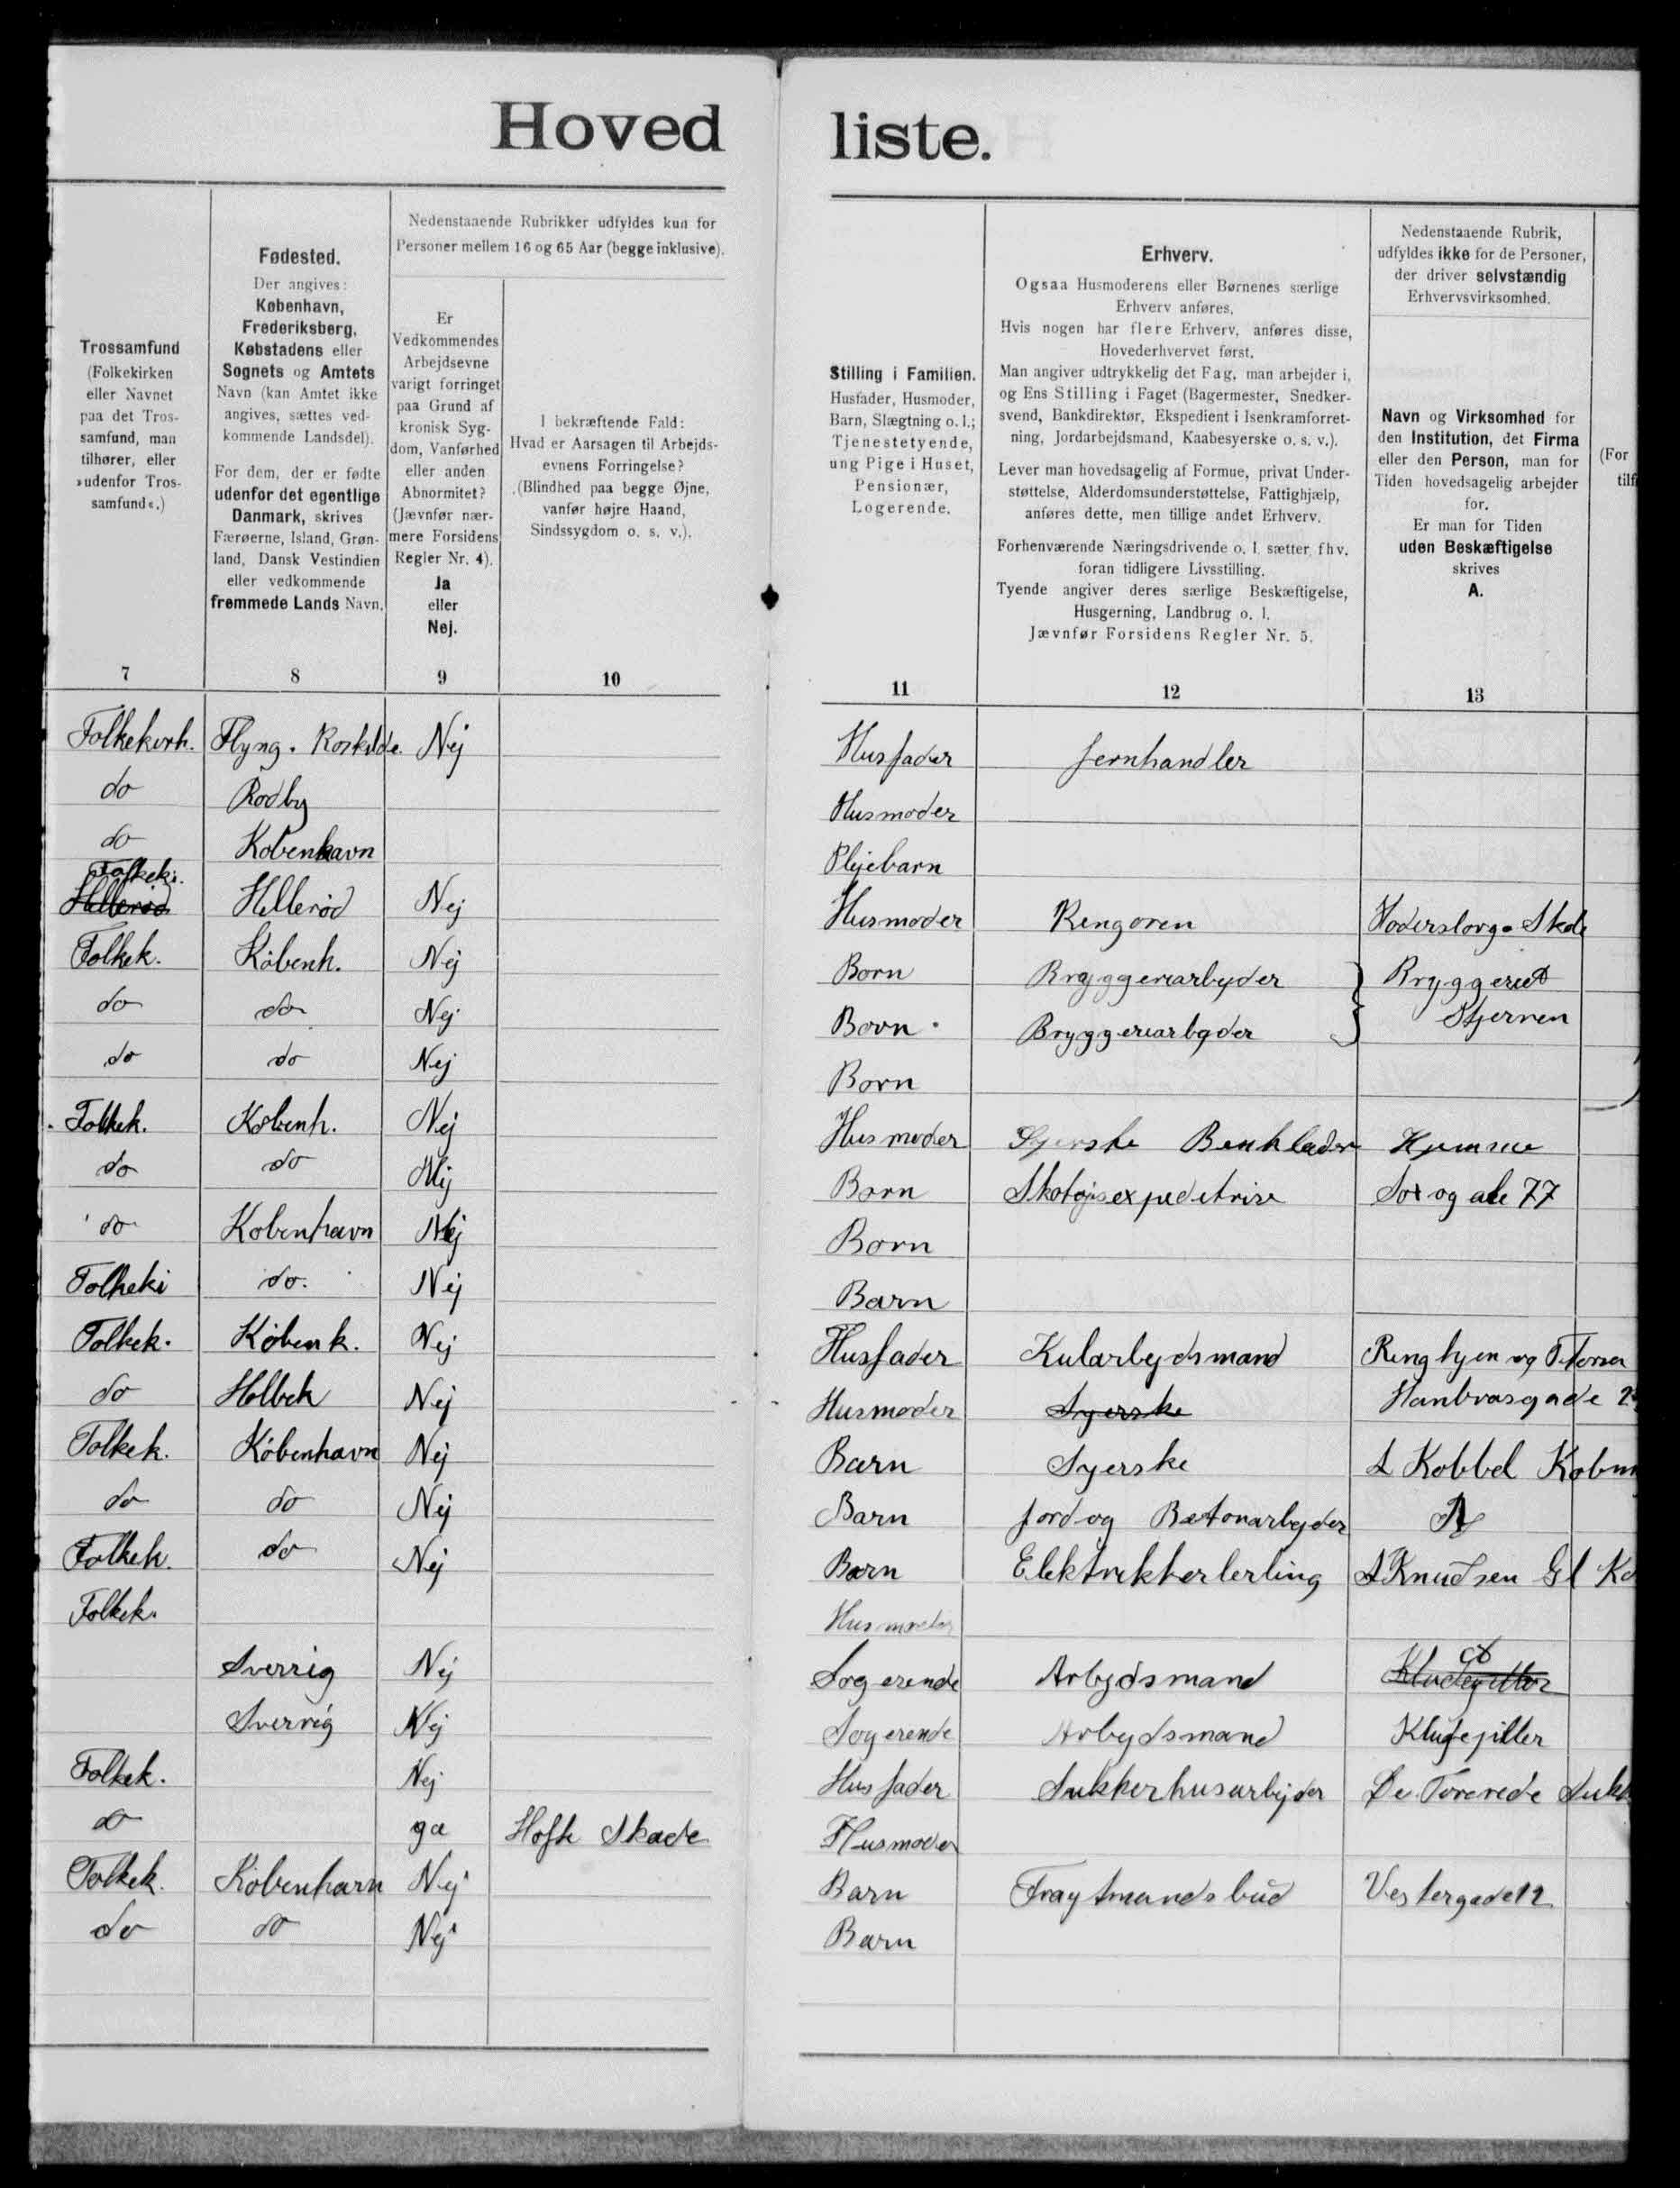 Hoved
liste.
Nedenstaaende Rubrikker udfyldes kun for
Personer mellem 16 og 65 Aar (begge inklusive).
Trossamfund
(Folkekirken
eller Navnet
paa det Tros-
samfund, man
tilhører, eller
»udenfor Tros-
samfund«.)
7
Fødested.
Der angives:
København,
Frederiksberg,
Købstadens eller
Sognets og Amtets
Navn (kan Amtet ikke
angives, sættes ved-
kommende Landsdel).
For dem, der er fødte
udenfor det egentlige
Danmark, skrives
Færøerne, Island, Grøn-
land, Dansk Vestindien
eller vedkommende
fremmede Lands Navn.
8
Er
Vedkommendes
Arbejdsevne
varigt forringet
paa Grund af
kronisk Syg-
dom, Vanførhed
eller anden
Abnormitet?
(Jævnfør nær-
mere Forsidens
Regler Nr. 4).
Ja
eller
Nej.
9
I bekræftende Fald:
Hvad er Aarsagen til Arbejds-
evnens Forringelse?
(Blindhed paa begge Øjne,
vanfør højre Haand,
Sindssygdom o. s. v.).
10
Stilling i Familien.
Husfader, Husmoder,
Barn, Slægtning o. l.;
Tjenestetyende,
ung Pige i Huset,
Pensionær,
Logerende.
11
Erhverv.
Ogsaa Husmoderens eller Børnenes særlige
Erhverv anføres.
Hvis nogen har flere Erhverv, anføres disse,
Hovederhvervet først.
Man angiver udtrykkelig det Fag, man arbejder i,
og Ens Stilling i Faget (Bagermester, Snedker-
svend, Bankdirektør, Ekspedient i Isenkramforret-
ning, Jordarbejdsmand, Kaabesyerske o. s. v.).
Lever man hovedsagelig af Formue, privat Under-
støttelse, Alderdomsunderstøttelse, Fattighjælp,
anføres dette, men tillige andet Erhverv.
Forhenværende Næringsdrivende o. l. sætter fhv.
foran tidligere Livsstilling.
Tyende angiver deres særlige Beskæftigelse,
Husgerning, Landbrug o. l.
Jævnfør Forsidens Regler Nr. 5.
12
Nedenstaaende Rubrik,
udfyldes ikke for de Personer,
der driver selvstændig
Erhvervsvirksomhed.
Navn og Virksomhed for
den Institution, det Firma
eller den Person, man for
Tiden hovedsagelig arbejder
for.
Er man for Tiden
uden Beskæftigelse
skrives
A.
13
(For
tilf
Folkekirk. Flyng. Roskilde. Nej Husfader Jernhandler
do Rodby Husmoder
do Kobenhavn Plejebarn
Folkeki.
Hellerød Hellerød Nej Husmoder Rengoren Skole
Folkek. Københ. Nej Born Bryggeriarbejder Bryggeriet
do do Nej Born Bryggeriarbejder Stjernen
do do Nej Born
Folkek. Københ. Nej Husmoder Syerske Benklæder Hjemme
do do Nej Barn Skotøjsexpeditrise 77
do Kobenhavn Nej Born
Folkeki do. Nej Barn
Folkek. Københ. Nej Husfader Kularbejdsmand og Petersen
do Holbek Nej Husmoder Syerske
Folkek. København Nej Barn Syerske A Kobbel
do do Nej Barn Jord og Betonarbejder A
Folkek. do Nej Barn Elektrikkerlerling A Knudsen Gl
Folkek. Husmoder
Sverrig Nej Logerende Arbejdsmand
Sverrig Nej Logerende Arbejdsmand
Folkek. Nej Husfader Sukkerhusarbejder De Forenede Sukk
do ja Hofte Skade Husmoder
Folkek. København Nej Barn Fragtmandsbud Vestergade 12
do do Nej Barn